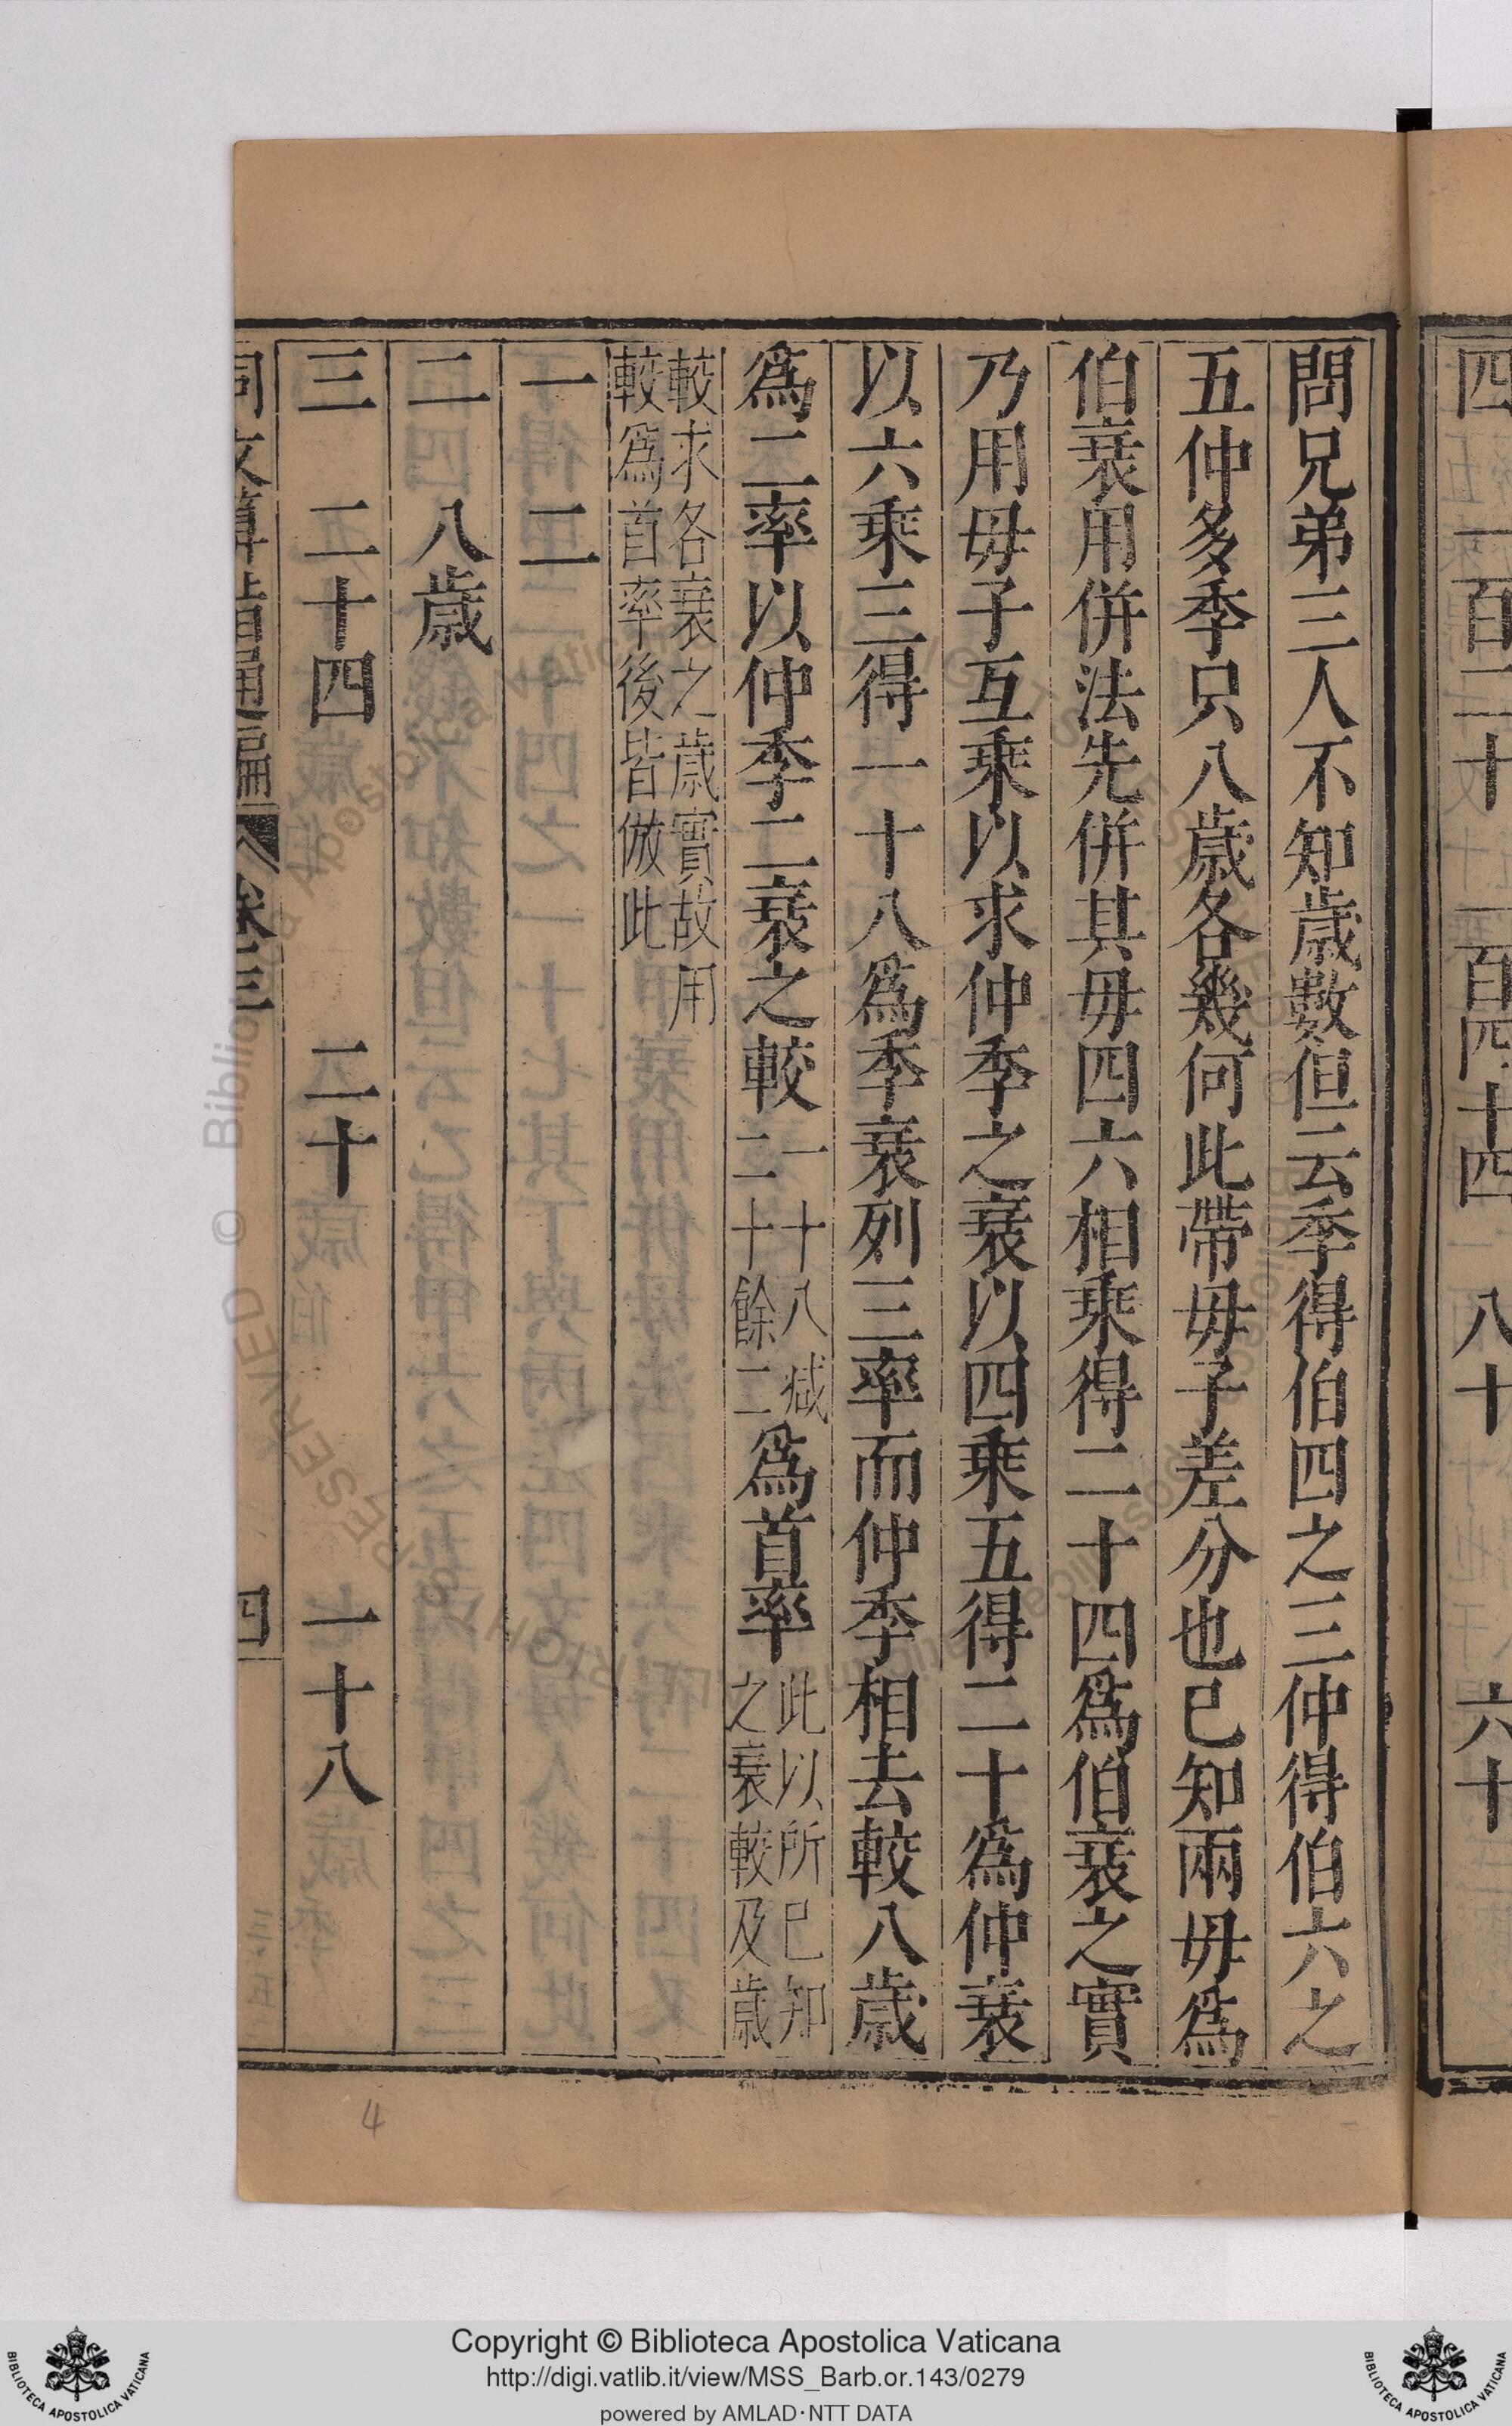 四　一百二十　一百四十四　八十　六十
問兄弟三人不知歲數但云季得伯四之三仲得伯六之
五仲多季只八歲各幾何此帶毋子差分也已知兩毋爲
伯衰用併法先併其毋四六相乘得二十四爲伯衰之實
乃用毋子互乘以求仲季之衰以四乘五得二十爲仲衰
以六乘三得一十八爲季衰列三率而仲季相去較八歲
爲二率以仲季二衰之較一十八減二十餘二爲首率此以所已知之衰較及歲
較求各衰之歲實故用
較爲首率後皆倣此
一　二
二　八歲
三　二十四　二十　一十八
同文算指通編　卷三　四
4
Copyright © Biblioteca Apostolica Vaticana
http://digi.vatlib.it/view/MSS_Barb.or.143/0279
powered by AMLAD·NTT DATA
BIBLIOTECA APOSTOLICA VATICANA
BIBLIOTECA APOSTOLICA VATICANA